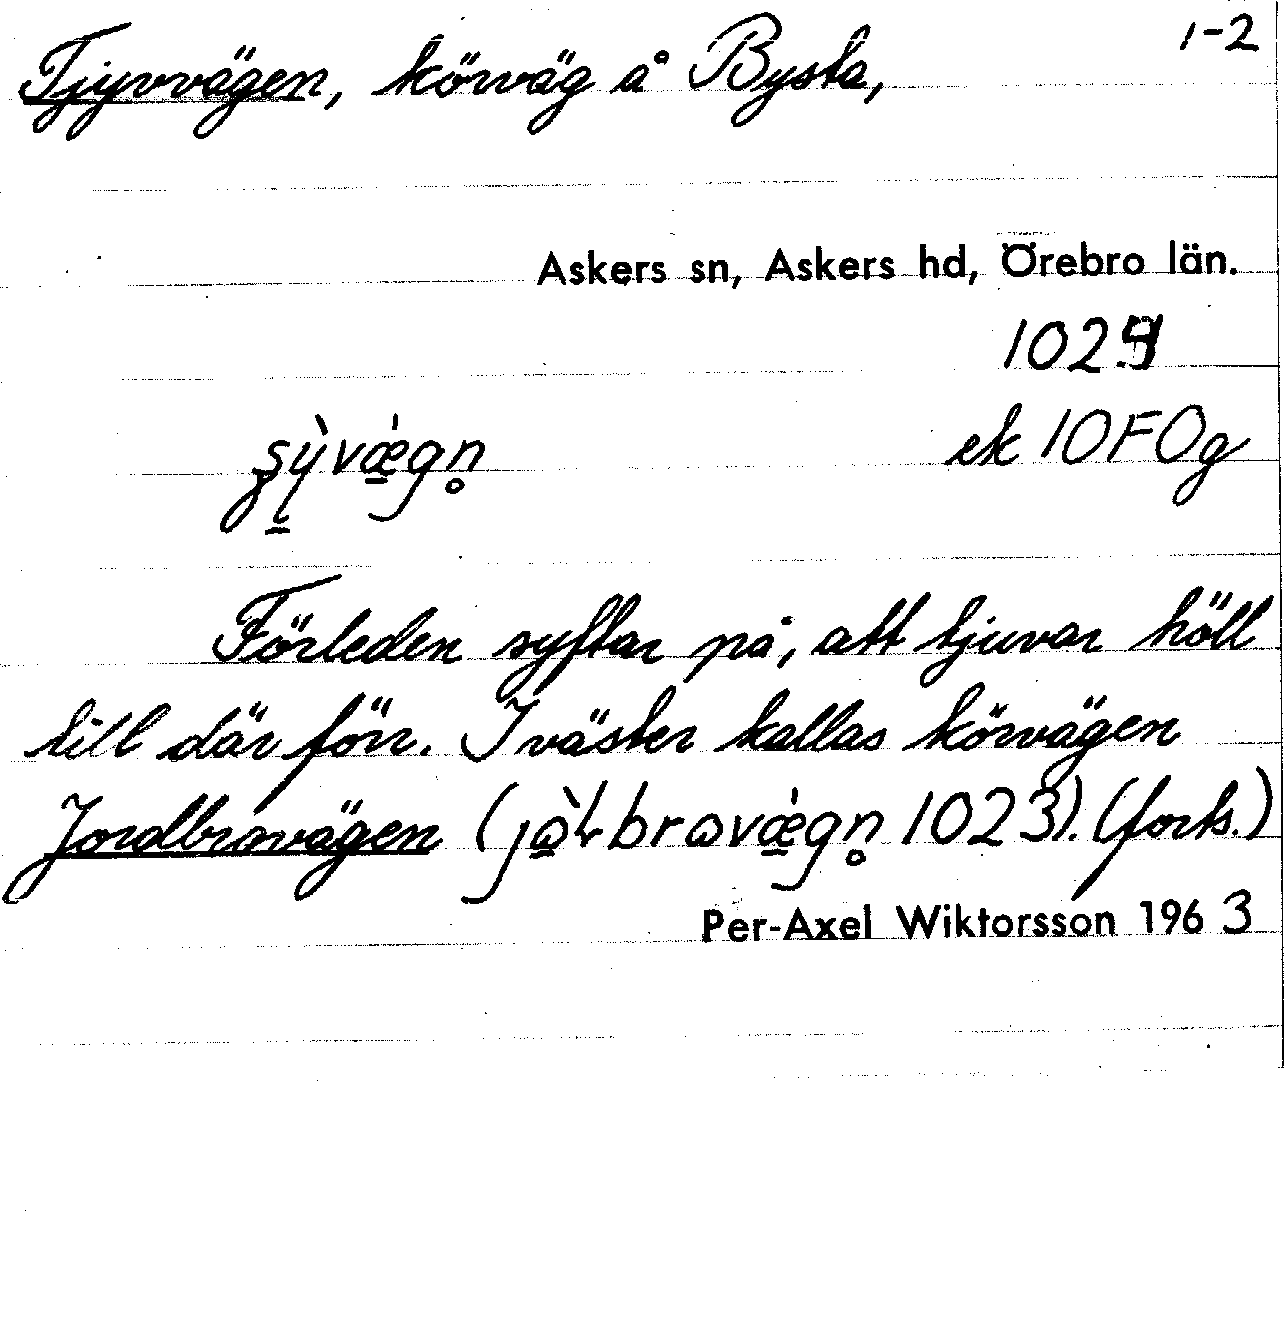 1-2
Tjyvvägen, körväg å Bysta,
Askers sn, Askers hd, Örebro län.
ek 10F0g
Förleden syftar på, att tjuvar höll
till där förr. I väster kallas körvägen
Jordbrovägen 1023). (forts.)
Per-Axel Wiktorsson 1963